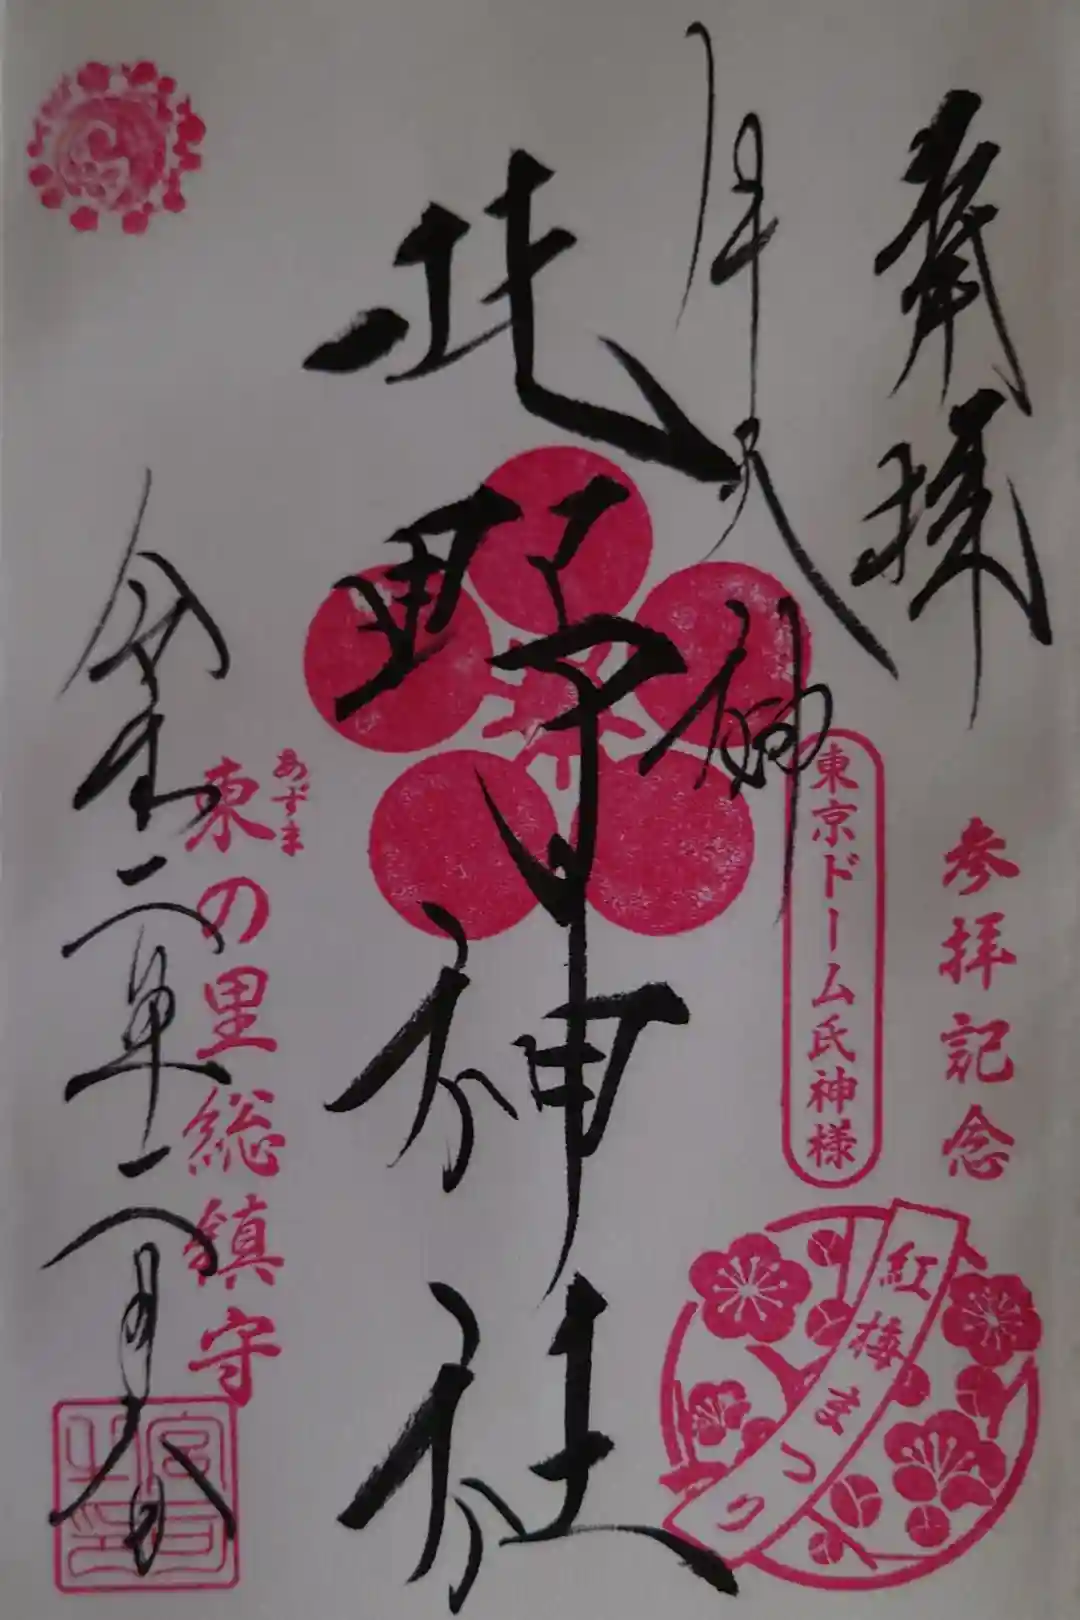 奉拝
参拝記念
紅梅まつり
牛天神
東京ドーム氏神様
北野神社
あずま
東の里総鎮守
令和二年二月八日